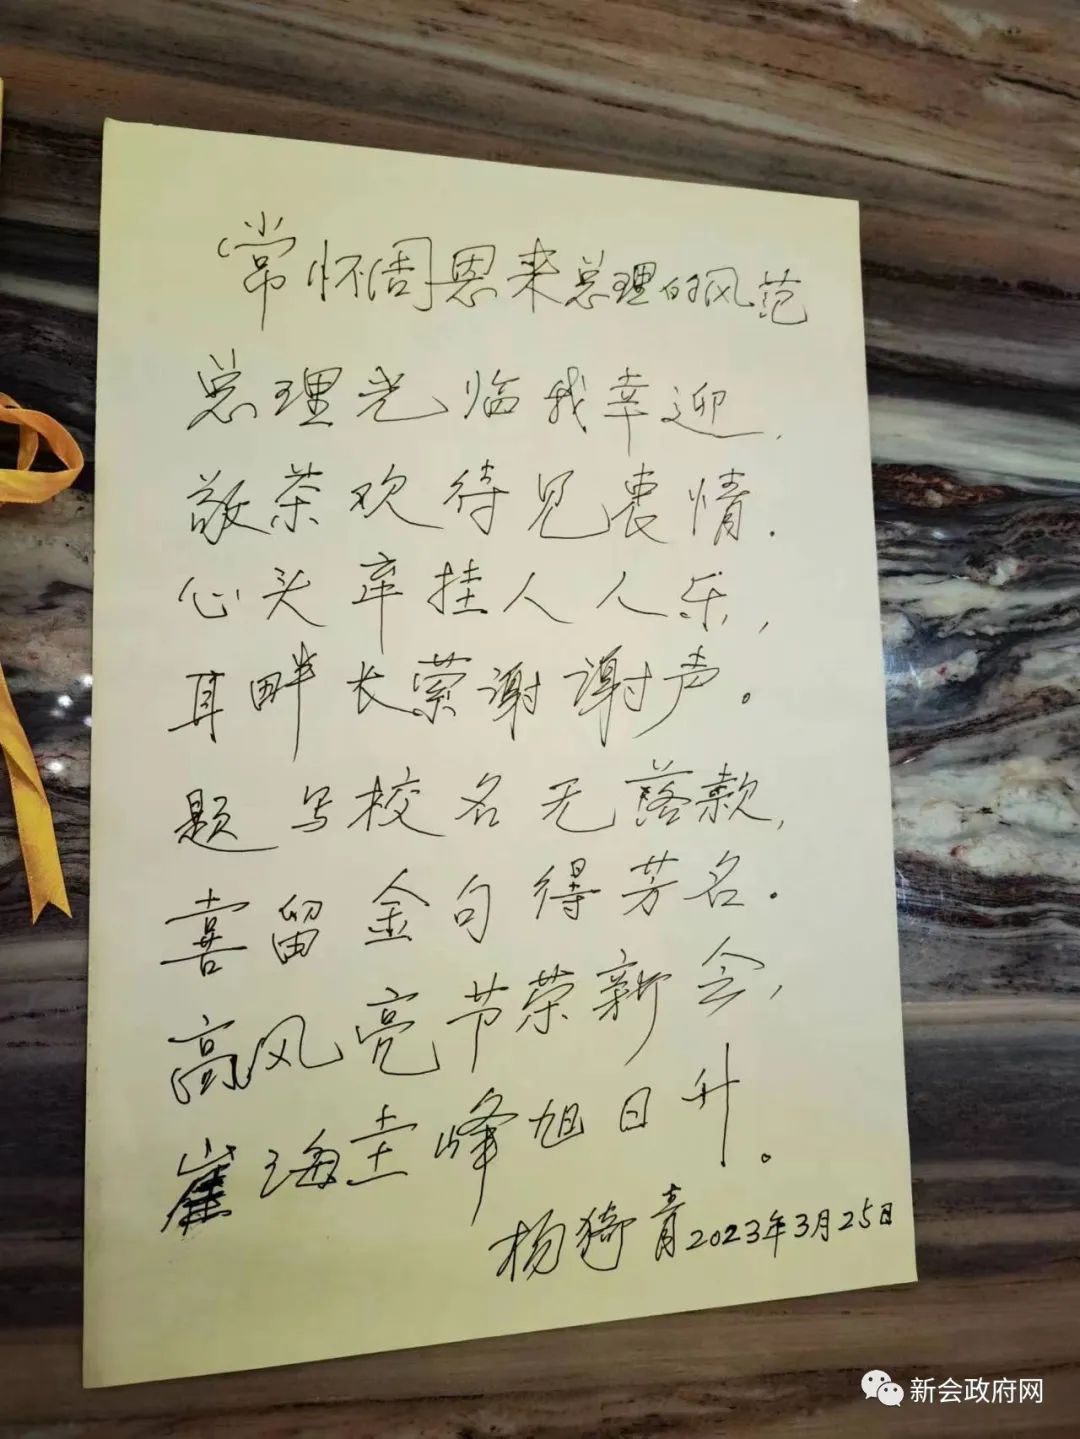 常怀周恩来总理的风范
总理光临我幸迎,
敬茶欢待见衷情.
心头牵挂人人乐,
耳畔长萦谢谢声。
题写校名无落款,
喜留金句得芳名.
高风亮节荣新会,
崖海圭峰旭日升。
杨猗青2023年3月25日
新会政府网